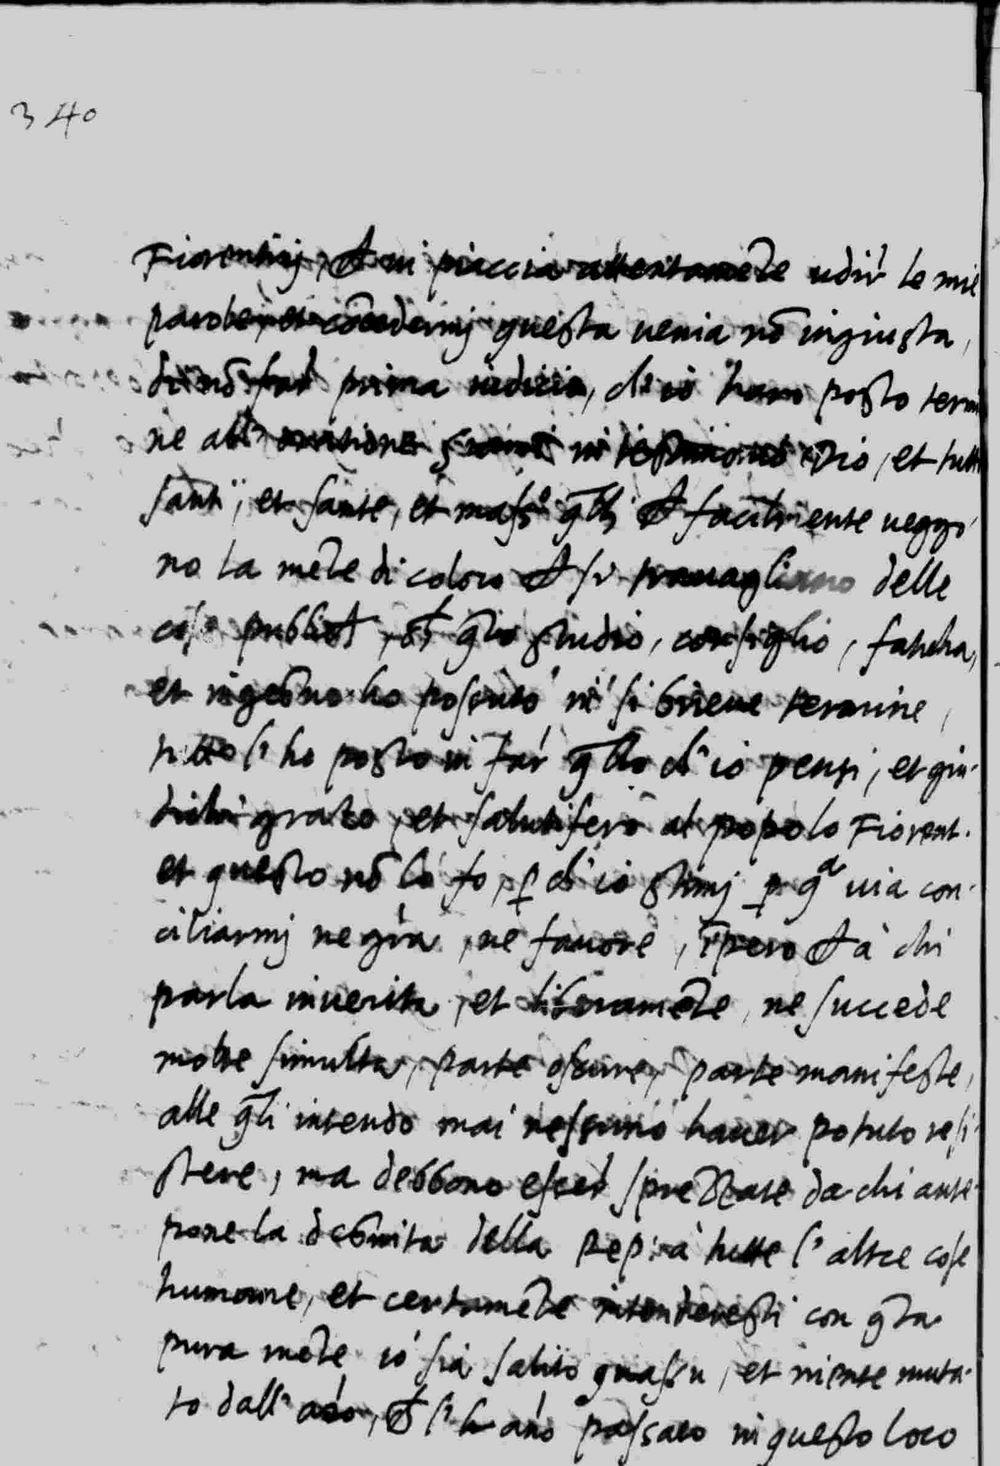 340
Fiorentinj, che vi piaccia attentamēte udir le mie
parole, et cōcedermj questa venia nō ingiusta,
di nō far prima iudicio, ch' io haro posto termi
ne all' oratione in testimonio Dio, et tutti
santi, et sante, et mass.e q̄lli che facilmente veggo
no la mēte di coloro che si travagliano delle
cose publiche, che q̄to studio, consiglio, faticha,
et ingegno ho possuto in si brieve termine,
tutto l' ho posto in far q̄llo ch' io pensi, et giu-
dichi grato, et salutifero al popolo Fiorent.
et questo nō lo fo, ꝑ ch' io stimj ꝑ q.a via con-
ciliarmj ne gr̄a, ne favore, īpero che à chi
parla in verita, et liberamēte, ne succede
molte simulta, parte oscure, parte manifeste,
alle q̄li intendo mai nessuno haver potuto resi-
stere, ma debbono esser sprezzate da chi ante-
pone la degnita della Rep: à tutte l' altre cose
humane, et certamēte intenderesti con q̄ta
pura mēte io sia salito quassu, et niente muta-
to dall' che l' hāno passato in questo loco